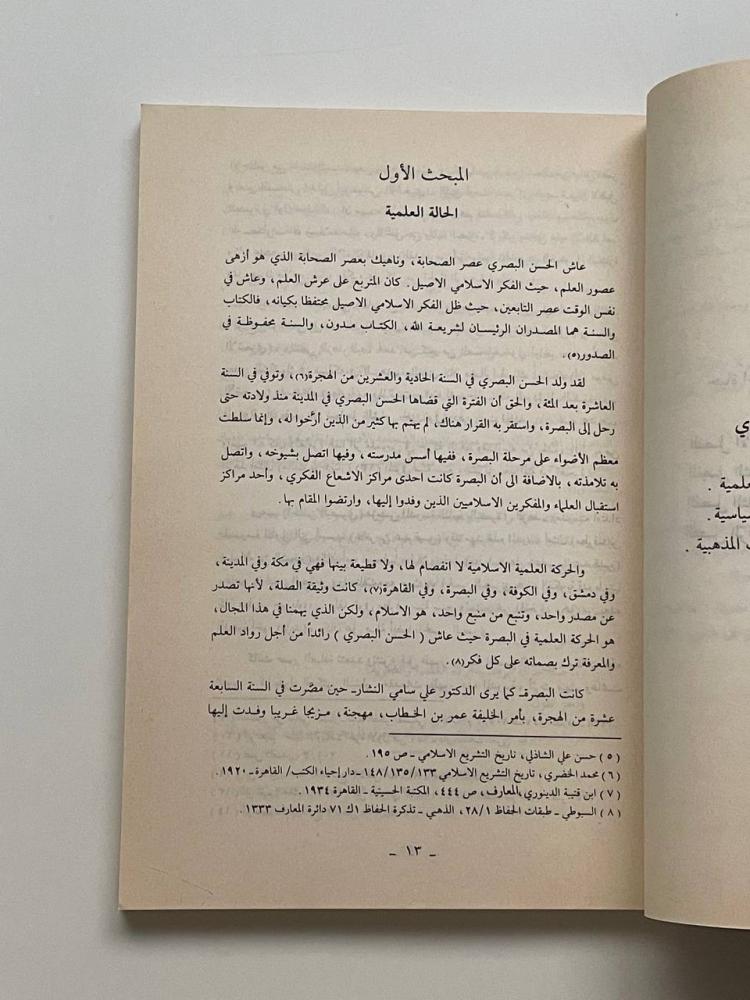 المبحث الأول
الحالة العلمية
عاش الحسن البصري عصر الصحابة، وناهيك بعصر الصحابة الذي هو أزهى
عصور العلم، حيث الفكر الاسلامي الاصيل. كان المتربع على عرش العلم، وعاش في
نفس الوقت عصر التابعين، حيث ظل الفكر الاسلامي الاصيل محتفظا بكيانه، فالكتاب
والسنة هما المصدران الرئيسان لشريعة الله، الكتاب مدون، والسنة محفوظة في
الصدور(٥).
لقد ولد الحسن البصري في السنة الحادية والعشرين من الهجرة(٦)، وتوفي في السنة
العاشرة بعد المئة، والحق أن الفترة التي قضاها الحسن البصري في المدينة منذ ولادته حتى
رحل إلى البصرة، واستقر به القرار هناك، لم يهتم بها كثير من الذين أرّخوا له، وإنما سلطت
معظم الأضواء على مرحلة البصرة، ففيها أسس مدرسته، وفيها اتصل بشيوخه، واتصل
به تلامذته، بالاضافة الى أن البصرة كانت احدى مراكز الاشعاع الفكري، وأحد مراكز
استقبال العلماء والمفكرين الاسلاميين الذين وفدوا إليها، وارتضوا المقام بها.
والحركة العلمية الاسلامية لا انفصام لها، ولا قطيعة بينها فهي في مكة وفي المدينة،
وفي دمشق، وفي الكوفة، وفي البصرة، وفي القاهرة(٧)، كانت وثيقة الصلة، لأنها تصدر
عن مصدر واحد، وتنبع من منبع واحد، هو الاسلام، ولكن الذي يهمنا في هذا المجال،
هو الحركة العلمية في البصرة حيث عاش ( الحسن البصري ) رائداً من أجل رواد العلم
والمعرفة ترك بصماته على كل فكر(٨).
كانت البصرة ـ كما يرى الدكتور علي سامي النشار ـ حين مصّرت في السنة السابعة
عشرة من الهجرة، بأمر الخليفة عمر بن الخطاب، مهجنة، مزيجا غريبا وفدت إليها
(٥) حسن علي الشاذلي، تاريخ التشريع الاسلامي ـ ص ١٩٥.
(٦) محمد الخضري، تاريخ التشريع الاسلامي ١٣٣/١٣٥/١٤٨ ـ دار إحياء الكتب/ القاهرة ـ ١٩٢٠.
(٧) ابن قتيبة الدينوري، المعارف، ص ٤٤٤، المكتبة الحسينية ـ القاهرة ١٩٣٤.
(٨) السيوطي ـ طبقات الحفاظ ٢٨/١، الذهبي ـ تذكرة الحفاظ ١ك ٧١ دائرة المعارف ١٣٣٣.
ـ ١٣ ـ
المذهبية .